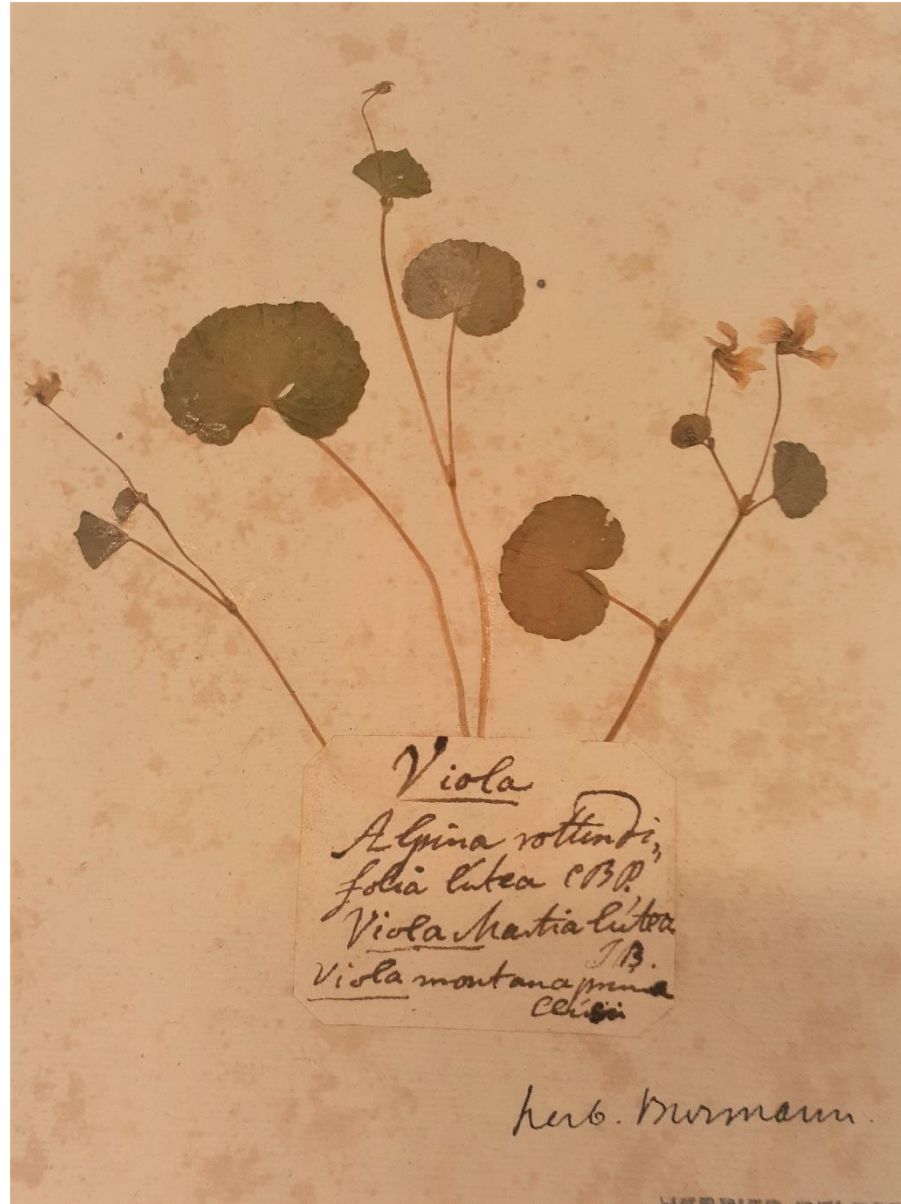 Viola
Alpina rottundi,,
folia lutea CBP.
Viola Martia lutea
JB.
Viola montana prima
Clusii
herb. Burmann.